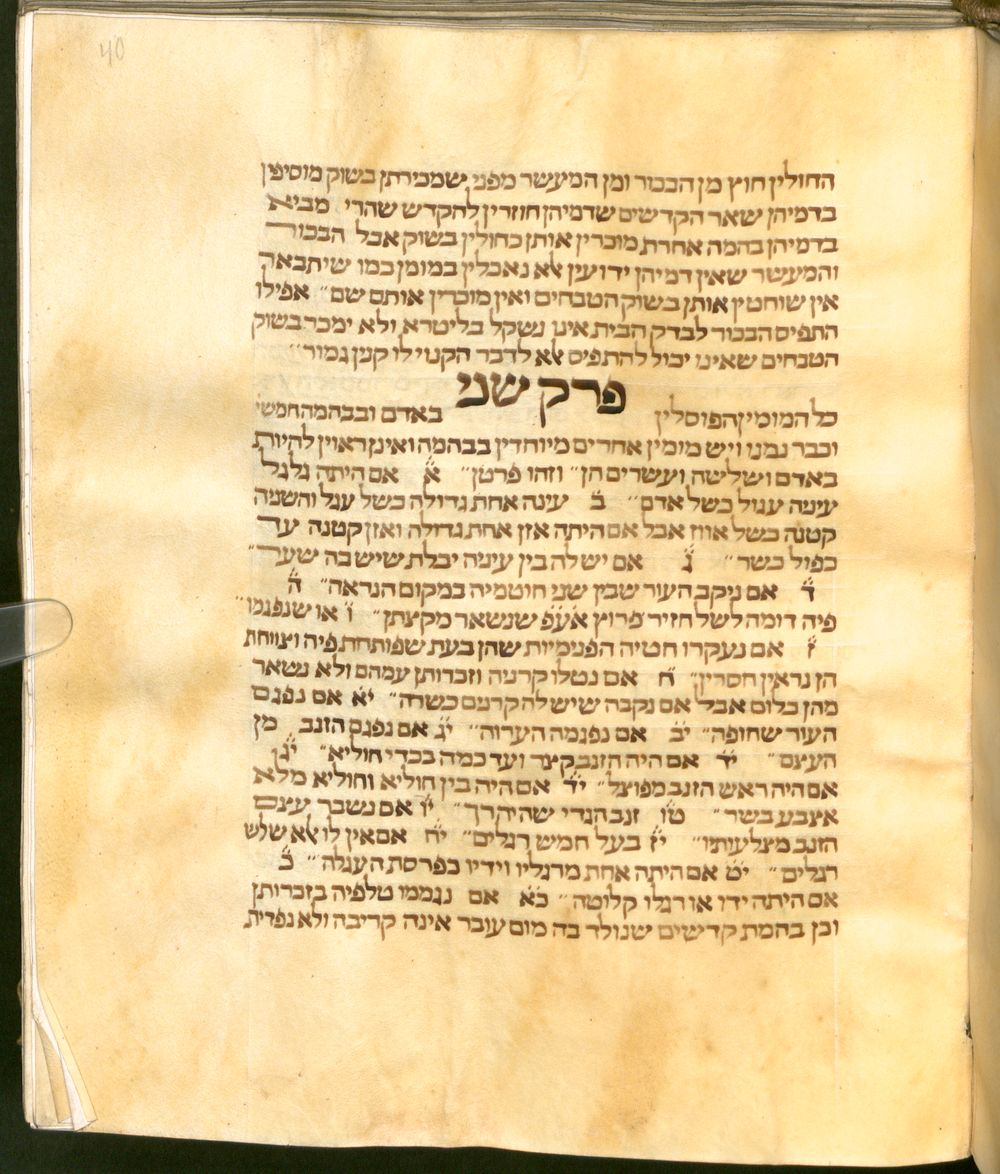 40
החולין חוץ מן הבכור ומן המעשר מפני שמכירתן בשוק מוסיפין
בדמיהן שאר הקדשים שדמיהן חוזרין להקדש שהרי מביא
בדמיהן בהמה אחרת מוכרין אותן כחולין בשוק אבל הבכור
והמעשר שאין דמיהן ידועין לא נאכלין במומן כמו שיתבאר
אין שוחטין אותן בשוק הטבחים ואין מוכרין אותם שם״ אפילו
התפיס הבכור לבדק הבית אינו נשקל בליטרא ולא ימכר בשוק
הטבחים שאינו יכול להתפיס לא לדבר הקנוי לו קנין גמור״
פרק שני
כל המומין הפוסלין באדם ובבהמה חמשי׳
וכבר נמנו ויש מומין אחרים מיוחדין בבהמה ואינן ראוין להיות
באדם ושלישה ועשרים הן״ וזהו פרטן״ א אם היתה גלגל
עיניה עגול כשל אדם״ ב עינה אחת גדולה כשל עגל והשניה
קטנה כשל אווז אבל אם היתה אזן אחת גדולה ואזן קטנה עד
כפול כשר״ ג אם יש לה בין עיניה יבלת שיש בה שער״
ד אם ניקב העור שבין שני חוטמיה במקום הנראה״ ה
פיה דומה לשל חזיר פרוץ אעפ שנשאר מקצתן״ ו או שנפגמו״
ז אם נעקרו חטיה הפנימיות שהן בעת שפותחת פיה וצווחת
הן נראין חסרין״ ח אם נטלו קרניה וזכרותן עמהם ולא נשאר
מהן כלום אבל אם נקבה שיש לה קרנים כשרה״ יא אם נפגם
העור שחופה״ יב אם נפגמה הערוה״ יג אם נפגם הזנב מן
העצם״ יד אם היה הזנב קצר ועד כמה בכדי חוליא״ יג
אם היה ראש הזנב מפוצל״ יד אם היה בין חוליא וחוליא מלא
אצבע בשר״ טו זנב הגדי שהיה רך״ יו אם נשבר עצם
הזנב מצלעותיו״ יז בעל חמש רגלים״ יח אם אין לו לא שלש
רגלים״ יט אם היתה אחת מרגליו וידיו כפרסת העגלה״ כ
אם היתה ידו או רגלו קלוטה״ כא אם נגממו טלפיה בזכרותן
וכן בהמת קדשים שנולד בה מום עובר אינה קריבה ולא נפדית